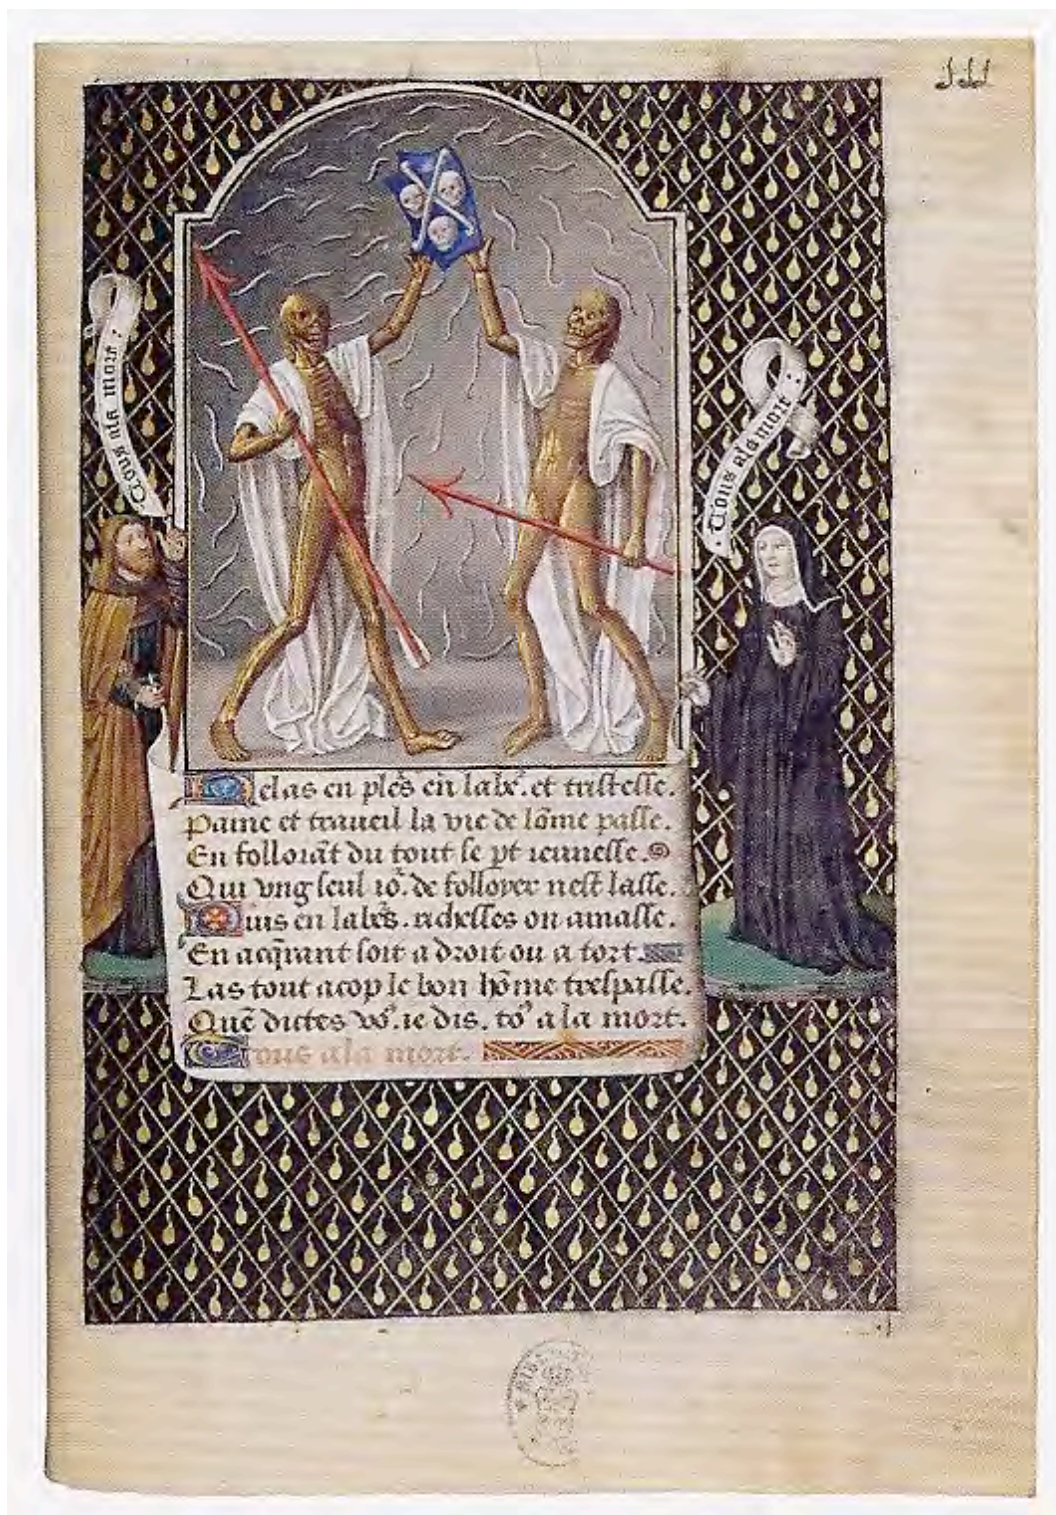 lll
Tous ala mort :
· Tous ala mort :
Helas en plēs en labr̄. et tristesse.
Paine et traueil la vie de lōme passe.
En follotāt du tout se pt ieunesse.
Qui vng seul io2. de folloyer nest lasse.
Puis en labēs. richesses on amasse.
En acq̄rant soit a droit ou a tort.
Las tout acop le bon hōme trespasse.
Quē dictes vo9. ie dis. to9 a la mort.
Tous ala mort.